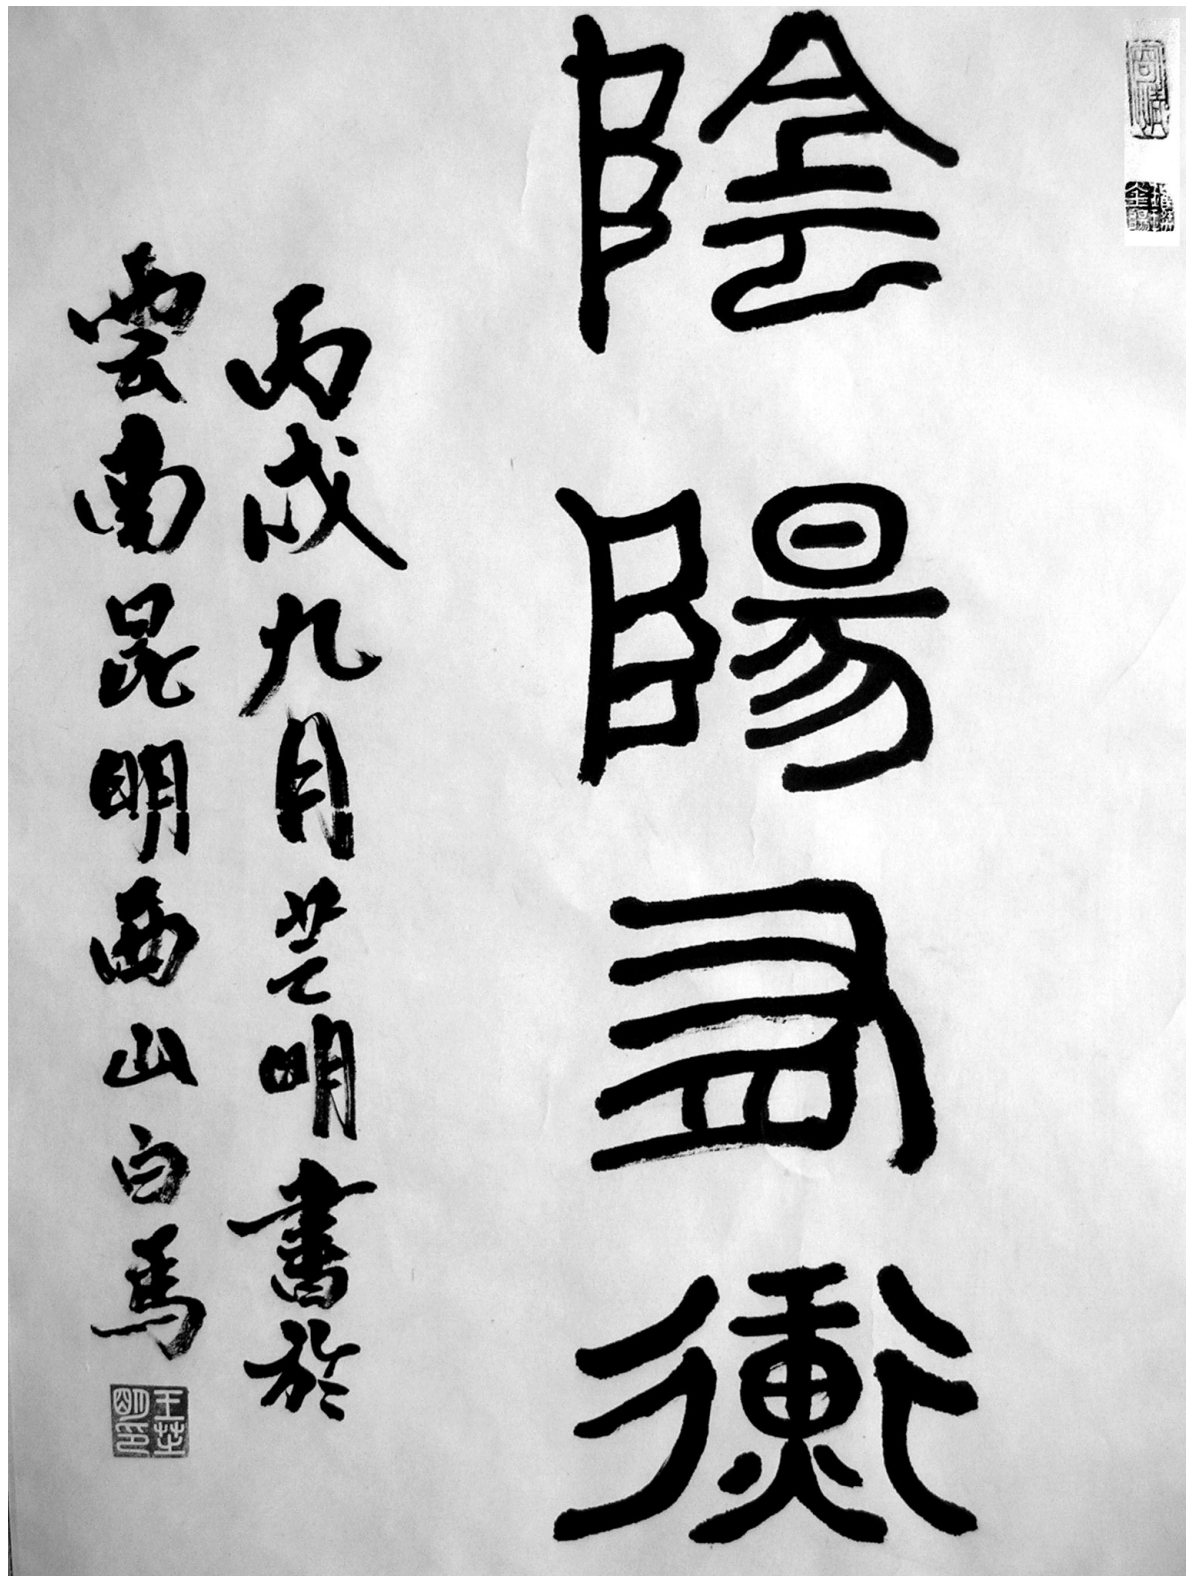 陰陽衡
丙戌九月芒明書於
雲南昆明西山白馬
王芒明印